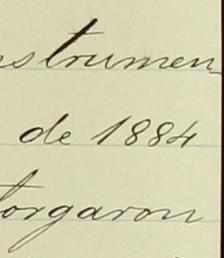 nstrumen
de 1884
torgaron